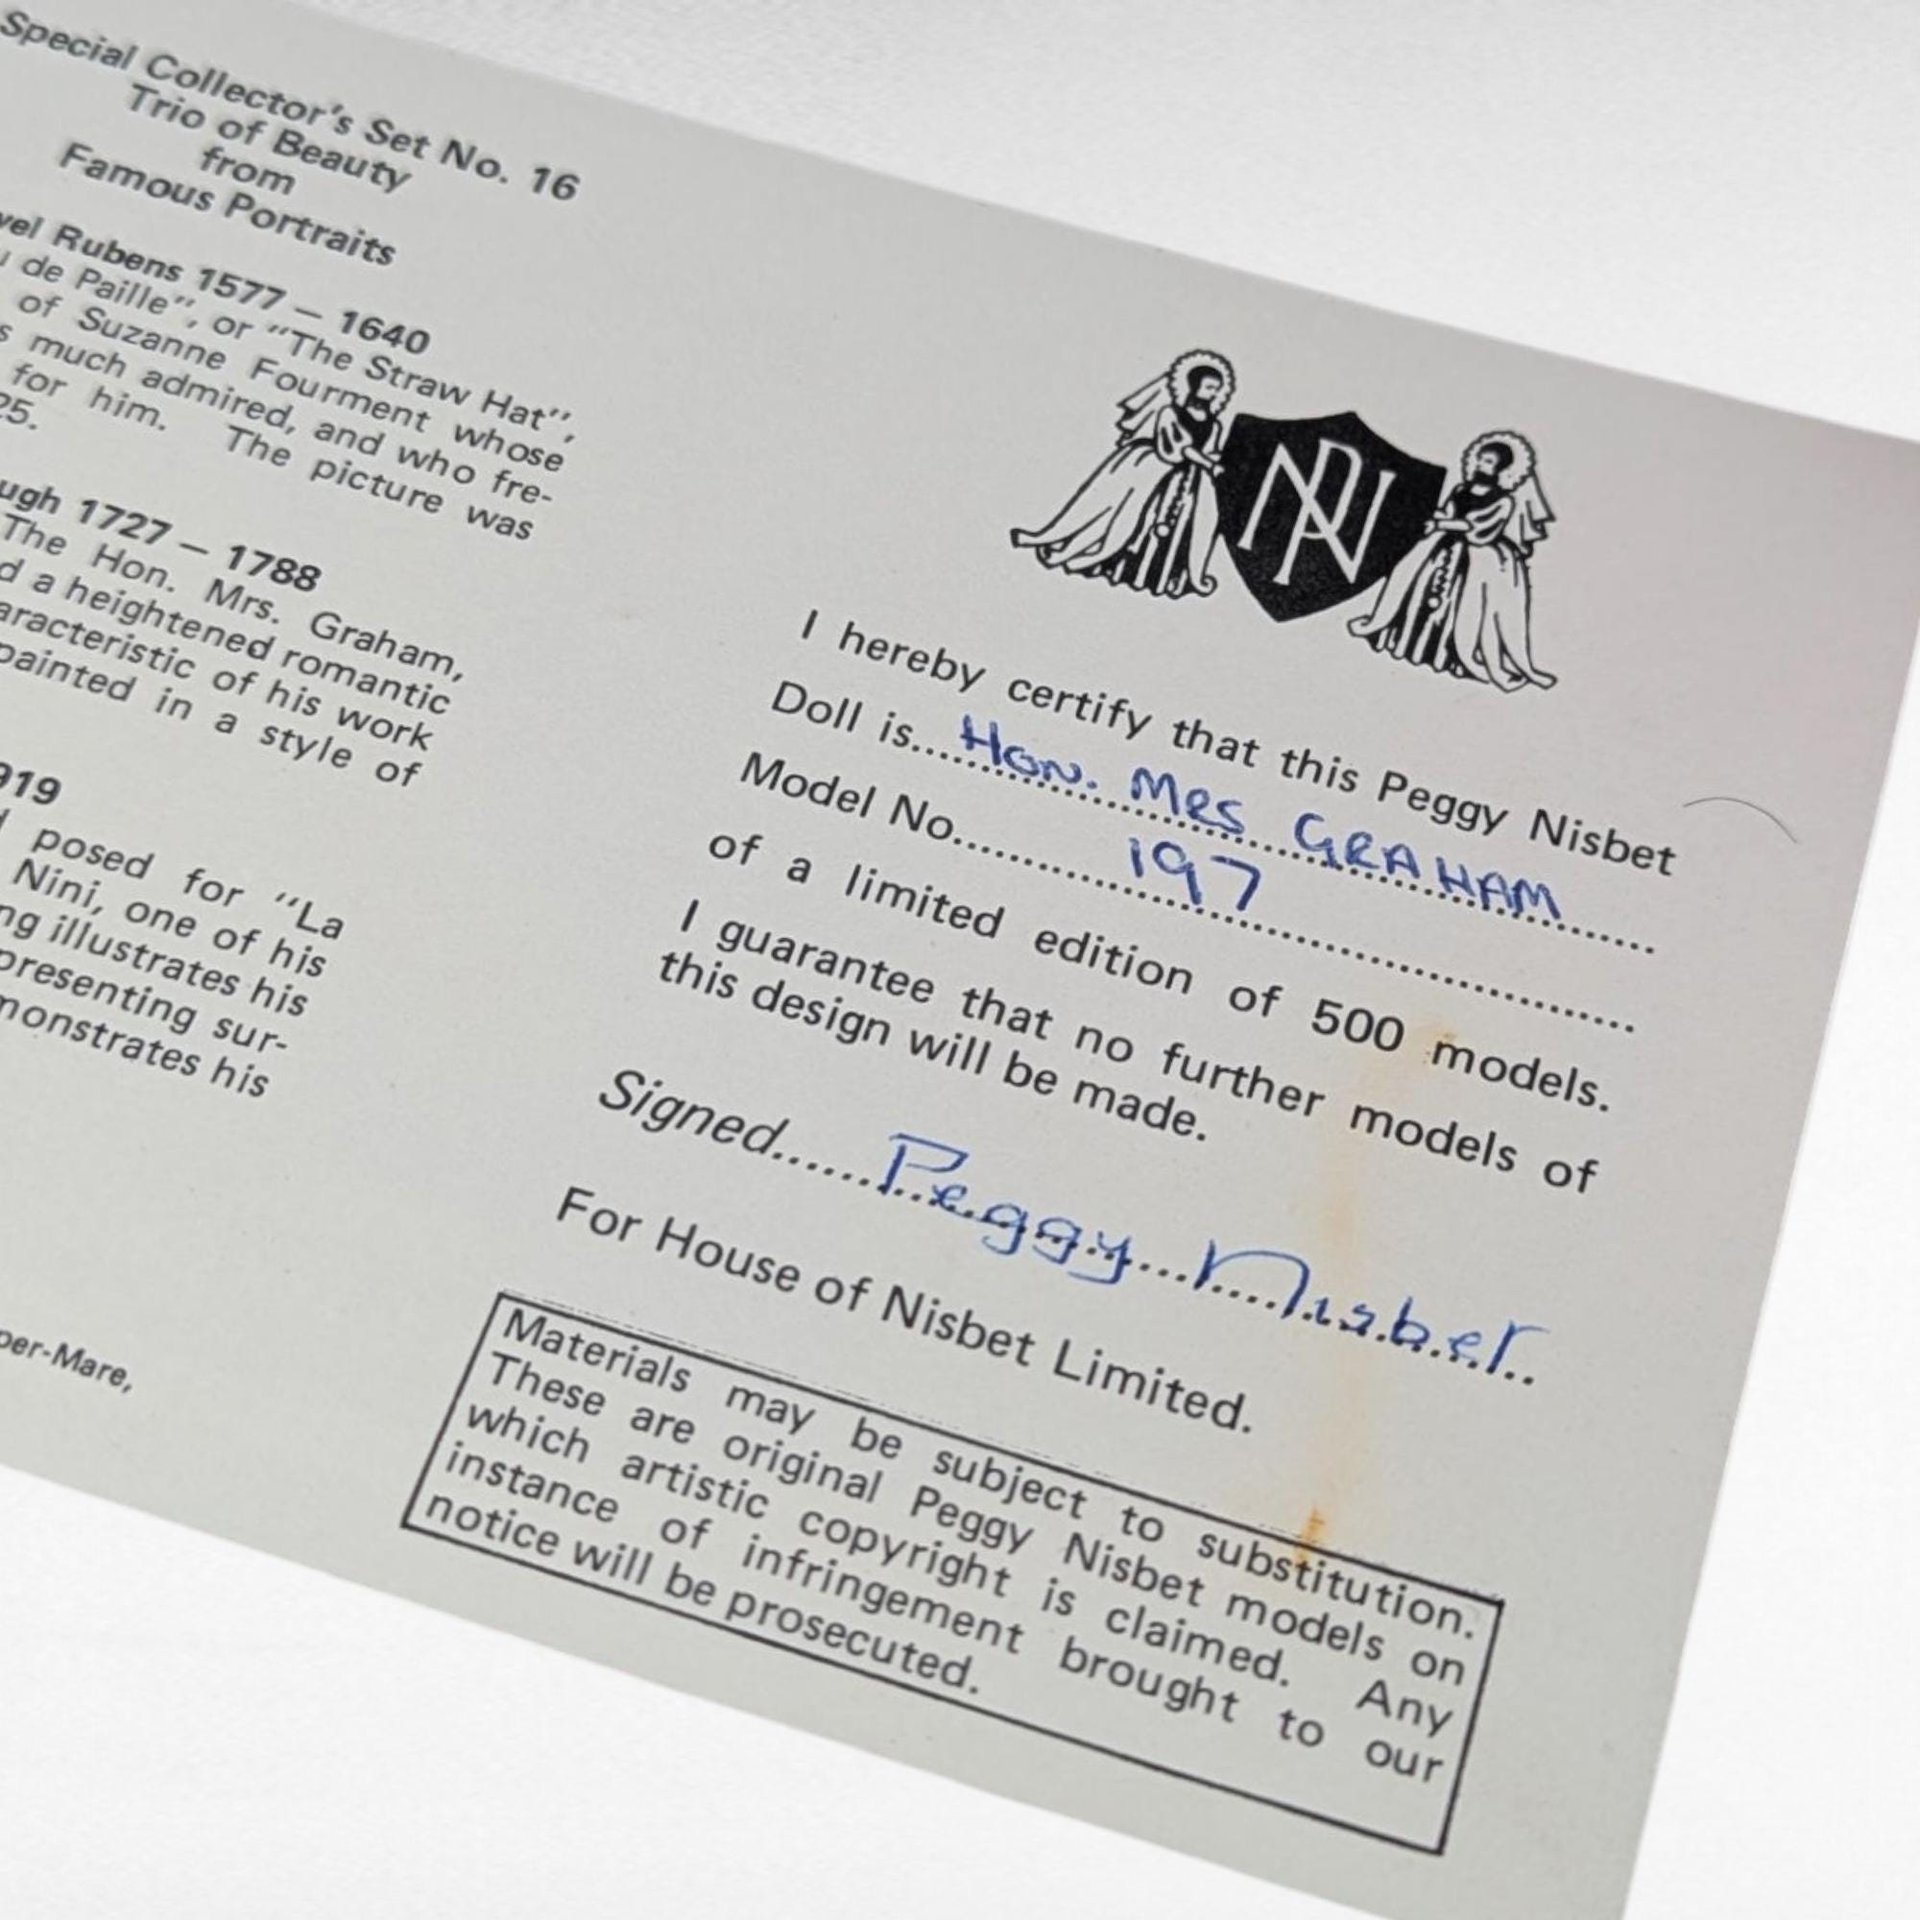 Special Collector's Set No. 16
Trio of Beauty
from
Famous Portraits
Rubens 1577 – 1640
de Paille", or "The Straw Hat",
of Suzanne Fourment whose
much admired, and who fre-
for him. The picture was
25.
1727 – 1788
The Hon. Mrs. Graham,
a heightened romantic
of his work
painted in a style of
919
posed for "La
Nini, one of his
illustrates his
sur-
his
per-Mare,
PN
I hereby certify that this Peggy Nisbet
Doll is...Hon. MRS GRAHAM
Model No. 197
of a limited edition of 500 models.
I guarantee that no further models of
this design will be made.
Signed Peggy Nisbet
For House of Nisbet Limited.
Materials may be subject to substitution.
These are original Peggy Nisbet models on
which artistic copyright is claimed. Any
instance of infringement brought to our
notice will be prosecuted.